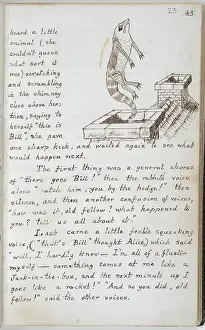 23 45
heard a little
animal (she
couldn't guess
what sort it
was) scratching
and scrambling
in the chimney
close above her;
then, saying to
herself "this is
Bill", she gave
one sharp kick, and waited again to see what
would happen next.
The first thing was a general chorus
of "there goes Bill!" then the rabbit's voice
alone "catch him, you by the hedge!" then
silence, and then another confusion of voices,
"how was it, old fellow? what happened to
you? tell us all about it."
Last came a little feeble squeaking
voice, ("that's Bill" thought Alice,) which said
"well, I hardly know—I'm all of a fluster
myself—something comes at me like a
Jack-in-the-box, and the next minute up I
goes like a rocket!" "And so you did, old
fellow!" said the other voices.